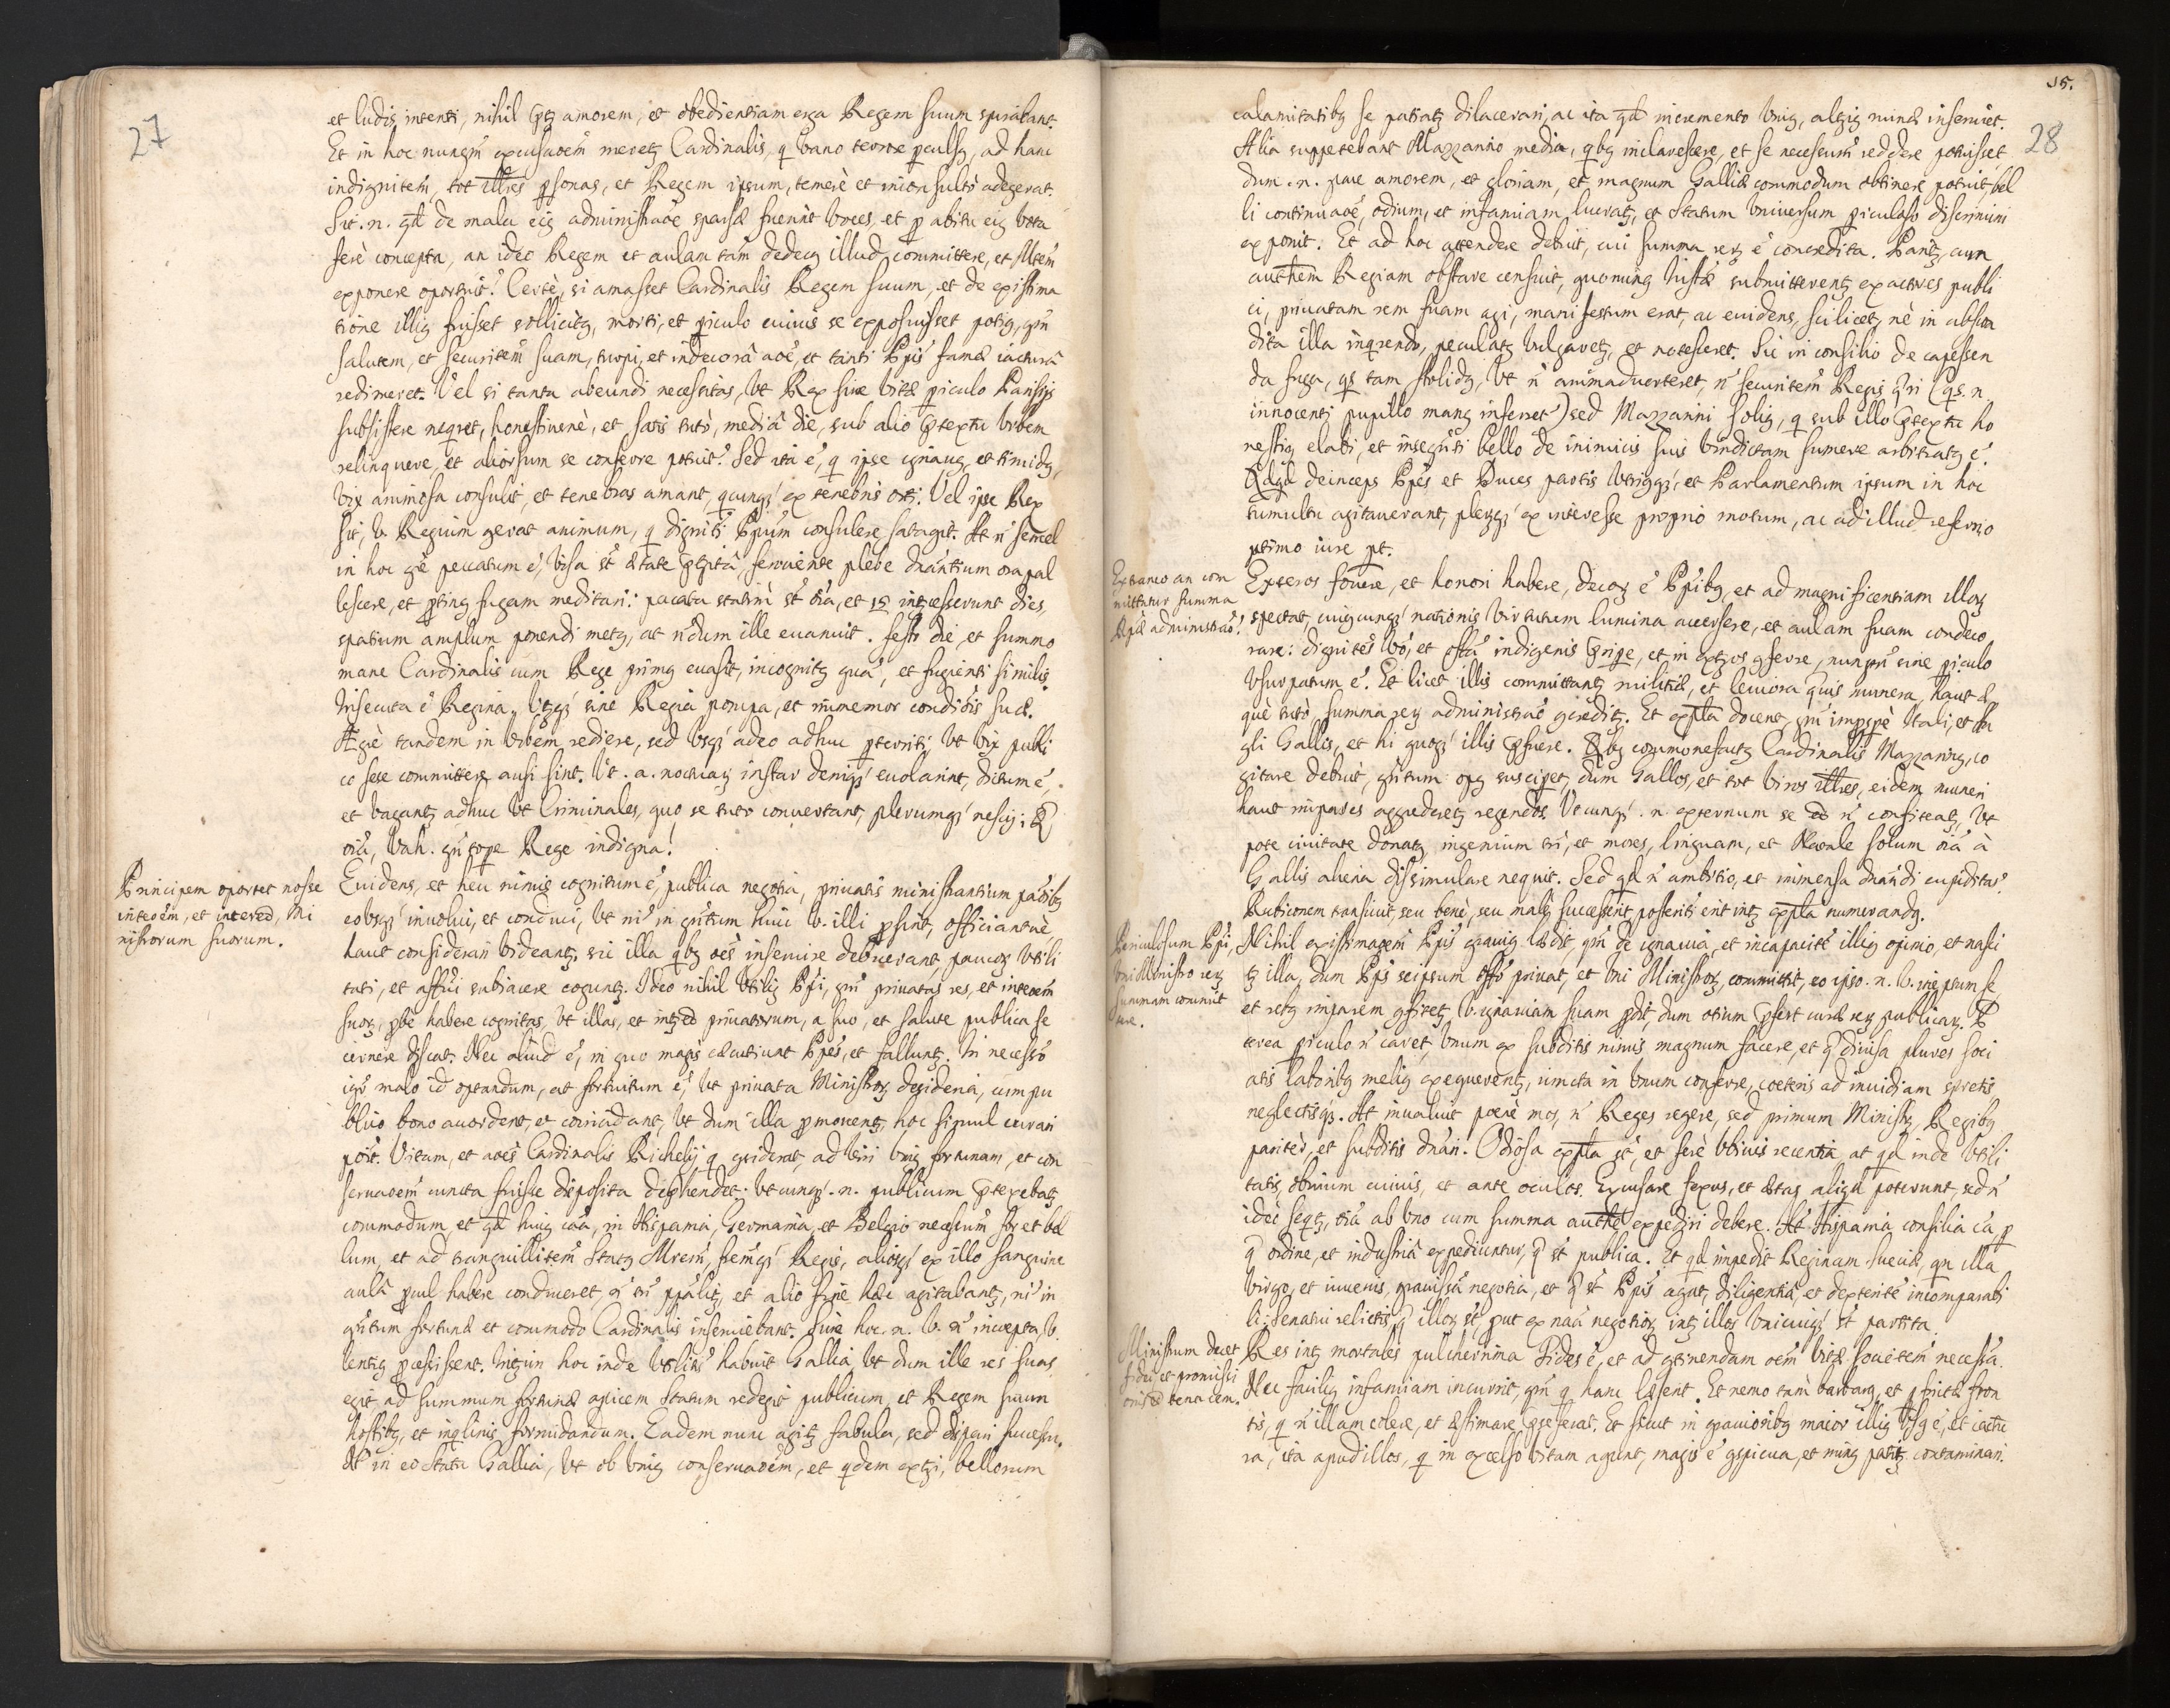 27
et ludis intenti, nihil prȩtȝ amorem, et obedientiam erga Regem suum spirabant.
Et in hoc nunqm̃ excusaoẽm meretȝ Cardinalis, q̃ vano terrore perculsȝ, ad hanc
indignitem̃, tot illres personas, et Regem ipsum, temerè et inconsultò adegerat.
Sit .n. qd de mala eiȝ administraoẽ sparsæ fuerint voces, et p abitu eiȝ vota
ferè concepta, an ideo Regem et aulam tam̃ dedecȝ illud committere, et Mtem̃
exponere oportuit? Certè, si amasset Cardinalis Regem suum, et de existima
tione illiȝ fuisset sollicitȝ, morti, et piculo cuivis se exposuisset potiȝ, qm̃
salutem, et securitem̃ suam, turpi, et indecorâ aoẽ, et tanti Ppis famæ iacturâ
redimeret. Vel si tanta abeundi necessitas, vt Rex sine vitæ piculo Parisijs
subsistere nequiret, honestius, et satis tutò, mediâ die, sub alio prætextu vrbem
relinquere, et aliorsum se conferre potuit? Sed ita ẽ, q̃ ipse ignavȝ, et timidȝ,
vix animosa consulit, et tenebras amant, quicunqȝ ex tenebris orti. Vel ipse Rex
sit, v. Regium gerat animum, q̃ digniti Ppum̃ consulere satagit. At ñ semel
in hoc gñe peccatum ẽ, visa st̃ ætate præterita, fervente plebe dnãntium ora pal
lescere, et protinȝ fugam meditari: pacata statim̃ st̃ oĩa, et 15 intȝcesserunt dies
spatium amplum ponendi metȝ, at ñdum ille evanuit. festo die et summo
mane Cardinalis cum Rege primȝ evasit, incognitȝ quã, et fugienti similis.
Insecuta ẽ Regina, vtȝqȝ sine Regia pompa, et immemor conditiõis suæ.
Ægrè tandem in vrbem rediere, sed vsqȝ adeo adhuc pterriti, vt vix publi
co sese committere ausi sint. Vt .a. noctuaȝ instar deniqȝ evolarint, dictum ẽ,
et vagantȝ adhuc vt Criminales, quo se tuto convertant, plerumqȝ nescij: Q
oĩa, vah. qm̃ turpe Rege indigna!
Principem oportet nosse
inteoẽm, et interes., Mi
nistrorum suorum.
Evidens, et heu nimis cognitum ẽ, publica negotia, privatis ministrantium paõibȝ
eousqȝ involvi, et conduci, vt nĩ in qñtum huic v. illi prosint, officiantvè,
haut considerari videantȝ, sic illa qbȝ oẽs inservire debuerant, paucoȝ vtili
tati, et affũi subiacere cogantȝ. Ideo nihil vtiliȝ Ppi, qm̃ privatas res, et inteoẽm
suoȝ, probè habere cognitas, vt illas, et intȝed privatorum, a suo, et salute publica se
cernere discat. Nec aliud ẽ, in quo magis cæcutiunt Ppes, et falluntȝ. In necessõ
igr̃ malo id optandum, at fortuitum ẽ, vt privata Ministroȝ desideria, cum pu
blico bono accordent, et coincidant, vt dum illa promovent, hoc simul curari
põit. Vitam, et aoẽs Cardinalis Richelij q̃ considerat, ad viri vniȝ fortunam, et con
servaoẽm cuncta fuisse disposita deprehendet: vtcunqȝ .n. publicum prætexebatȝ
commodum, et qd huiȝ caã, in Hispania, Germania, et Belgio necessum foret bel
lum, et ad tranquillitem̃ Statȝ Mrem̃, fremqȝ Regis, aliosqȝ ex illo sanguine
aulâ procul habere conduceret, ñ tñ ppalitȝ, et alio fine hæc agitabantȝ, nĩ in
qñtum fortunæ et commodo Cardinalis inserviebant. Sive hoc .n. v. ñ incepta, v.
lentiȝ processissent. Intȝim hoc inde vtilitis habuit Gallia, vt dum ille res suas
egit, ad summum fortunæ apicem Statum redegit publicum, et Regem suum
hostibȝ, et inquilinis formidandum. Eadem nunc agitȝ fabula, sed dispari successu.
At in eo Statu Gallia, vt ob vniȝ conservaoẽm, et qdem extȝi, bellorum
15.
28
calamitatibȝ se patiatȝ dilacerari, ac ita qd incremento vniȝ, altȝiȝ ruinæ inserviet.
Alia suppetebant Mazzarino media, qbȝ inclarescere, et se necessum̃ reddere potuisset,
dum .n. pace amorem, et gloriam, et magnum Galliæ commodum obtinere potuit, bel
li continuaoẽ, odium, et infamiam lucratȝ, et Statum vniversum piculoso discrimini
exponit. Et ad hoc attendere debuit, cui summa reȝ ẽ concredita. Paritȝ, cum
authem̃ Regiam obstare censuit, quominȝ iustæ submitterentȝ exactores publi
ci, privatam rem suam agi, manifestum erat, ac evidens, scilicet, nè in abscon
dita illa inqrendo, peculatȝ vulgaretȝ, et notesceret. Sic in consilio de capessen
da fuga, qs tam stolidȝ, vt ñ animadverteret, ñ securitem̃ Regis qri (qs .n.
innocenti pupillo manȝ inferret) sed Mazzarini soliȝ, q̃ sub illo prætextu ho
nestiȝ elabi, et inseqti bello de inimicis suis vindictam sumere arbitratȝ ẽ.
Qdqd deinceps Ppes et Duces partis vtriqȝ, et Parlamentum ipsum in hoc
tumultu agitaverant, pleȝqȝ ex interesse proprio motum, ac ad illud referri o
ptimo iure pt.
Extraneo an com
mittatur summa
Rpcæ administraõ?
Exteros fovere, et honori habere, decoȝ ẽ Ppibȝ, et ad magnificentiam illoȝ
spectat, cuiȝcunqȝ nationis virtutum lumina accersere, et aulam suam condeco
rare: dignites võ, et offa indigenis pripe, et in extȝos conferre, nunqm̃ sine piculo
vsurpatum ẽ. Et licet illis committantȝ militiæ, et leviora qvis munera, haut æ
què tutò, summa reȝ administraõ creditȝ. Et expla docent, qm̃ improspè Itali, et An
gli Gallis, et hi quoqȝ illis præfuere. Qbȝ commonefactȝ Cardinalis Mazzarinȝ, co
gitare debuit, qñtum opȝ susciperet, dum Gallos, et tot viros illres, eidem muneri
haut impares aggrederetȝ regendos. Vtcunqȝ .n. externum se ñ confiteatȝ, vt
pote civitate donatȝ, ingenium tñ, et mores, linguam, et Natale solum oĩa à
Gallis aliena dissimulare nequit. Sed qd ñ ambitio, et immensa dnãndi cupiditas?
Rubiconem transivit, seu benè, seu malè successerit, posteris erit intȝ expla numerandȝ.
Periculosum Ppi,
vni Ministro reȝ
summam commit
tere.
Nihil existimaoẽm Ppis graviȝ lædit, qm̃ de ignavia, et incapacite illiȝ opinio, et nasci
tȝ illa, dum Pps seipsum offõ privat, et vni Ministroȝ, committit, eo ipso .n. v. ineptum se
et rebȝ imparem confitetȝ, v. ignaviam suam prodit, dum otium præfert curæ reȝ publicaȝ. P
terea piculo ñ caret, vnum ex subditis nimis magnum facere, et q̃ divisa plures soci
atis laboribȝ meliȝ exequerentȝ, cuncta in vnum conferre, coeteris ad invidiam spretis
neglectisqȝ. At invaluit poenè mos, ñ Reges regere, sed primum Ministȝ, Regibȝ
paritèr, et subditis dnãri. Odiosa expla st̃, et ferè vbivis recentia, at qd inde vtili
tatis, obvium cuivis, et ante oculos. Excusare sexus, et ætas aliqd poterunt, sed ñ
ideo seqtȝ, oĩa ab vno cum summa authe expediri debere. At Hispania consilia ca, p
q̃ ordine, et industriâ expediuntur, q̃ st̃ publica. Et qd impedit Reginam Sueciæ, qn illa
virgo, et iuvenis, gravissa negotia, et q̃ st̃ Ppis agat, diligentia, et dexterite incomparabi
li: Senatui relictis q̃ illoȝ st̃, prout ex nãa negotioȝ intȝ illos vnicuiqȝ st̃ partita.
Ministrum decet
fidei et promissi
onis tenacem.
Res intȝ mortales pulcherrima Fides ẽ, et ad continendam oẽm vitæ societem̃ necessa.
Nec faciliȝ infamiam incurrit, qm̃ q̃ hanc læserit. Et nemo tam barbarȝ, et pfrictæ fron
tis, q̃ ñ illam colere, et æstimare præseferat. Et sicut in gravioribȝ maior illiȝ vsȝ ẽ, et iactu
ra, ita apud illos, q̃ in excelso vitam agunt, magis ẽ conspicua, et minȝ patitȝ contaminari.